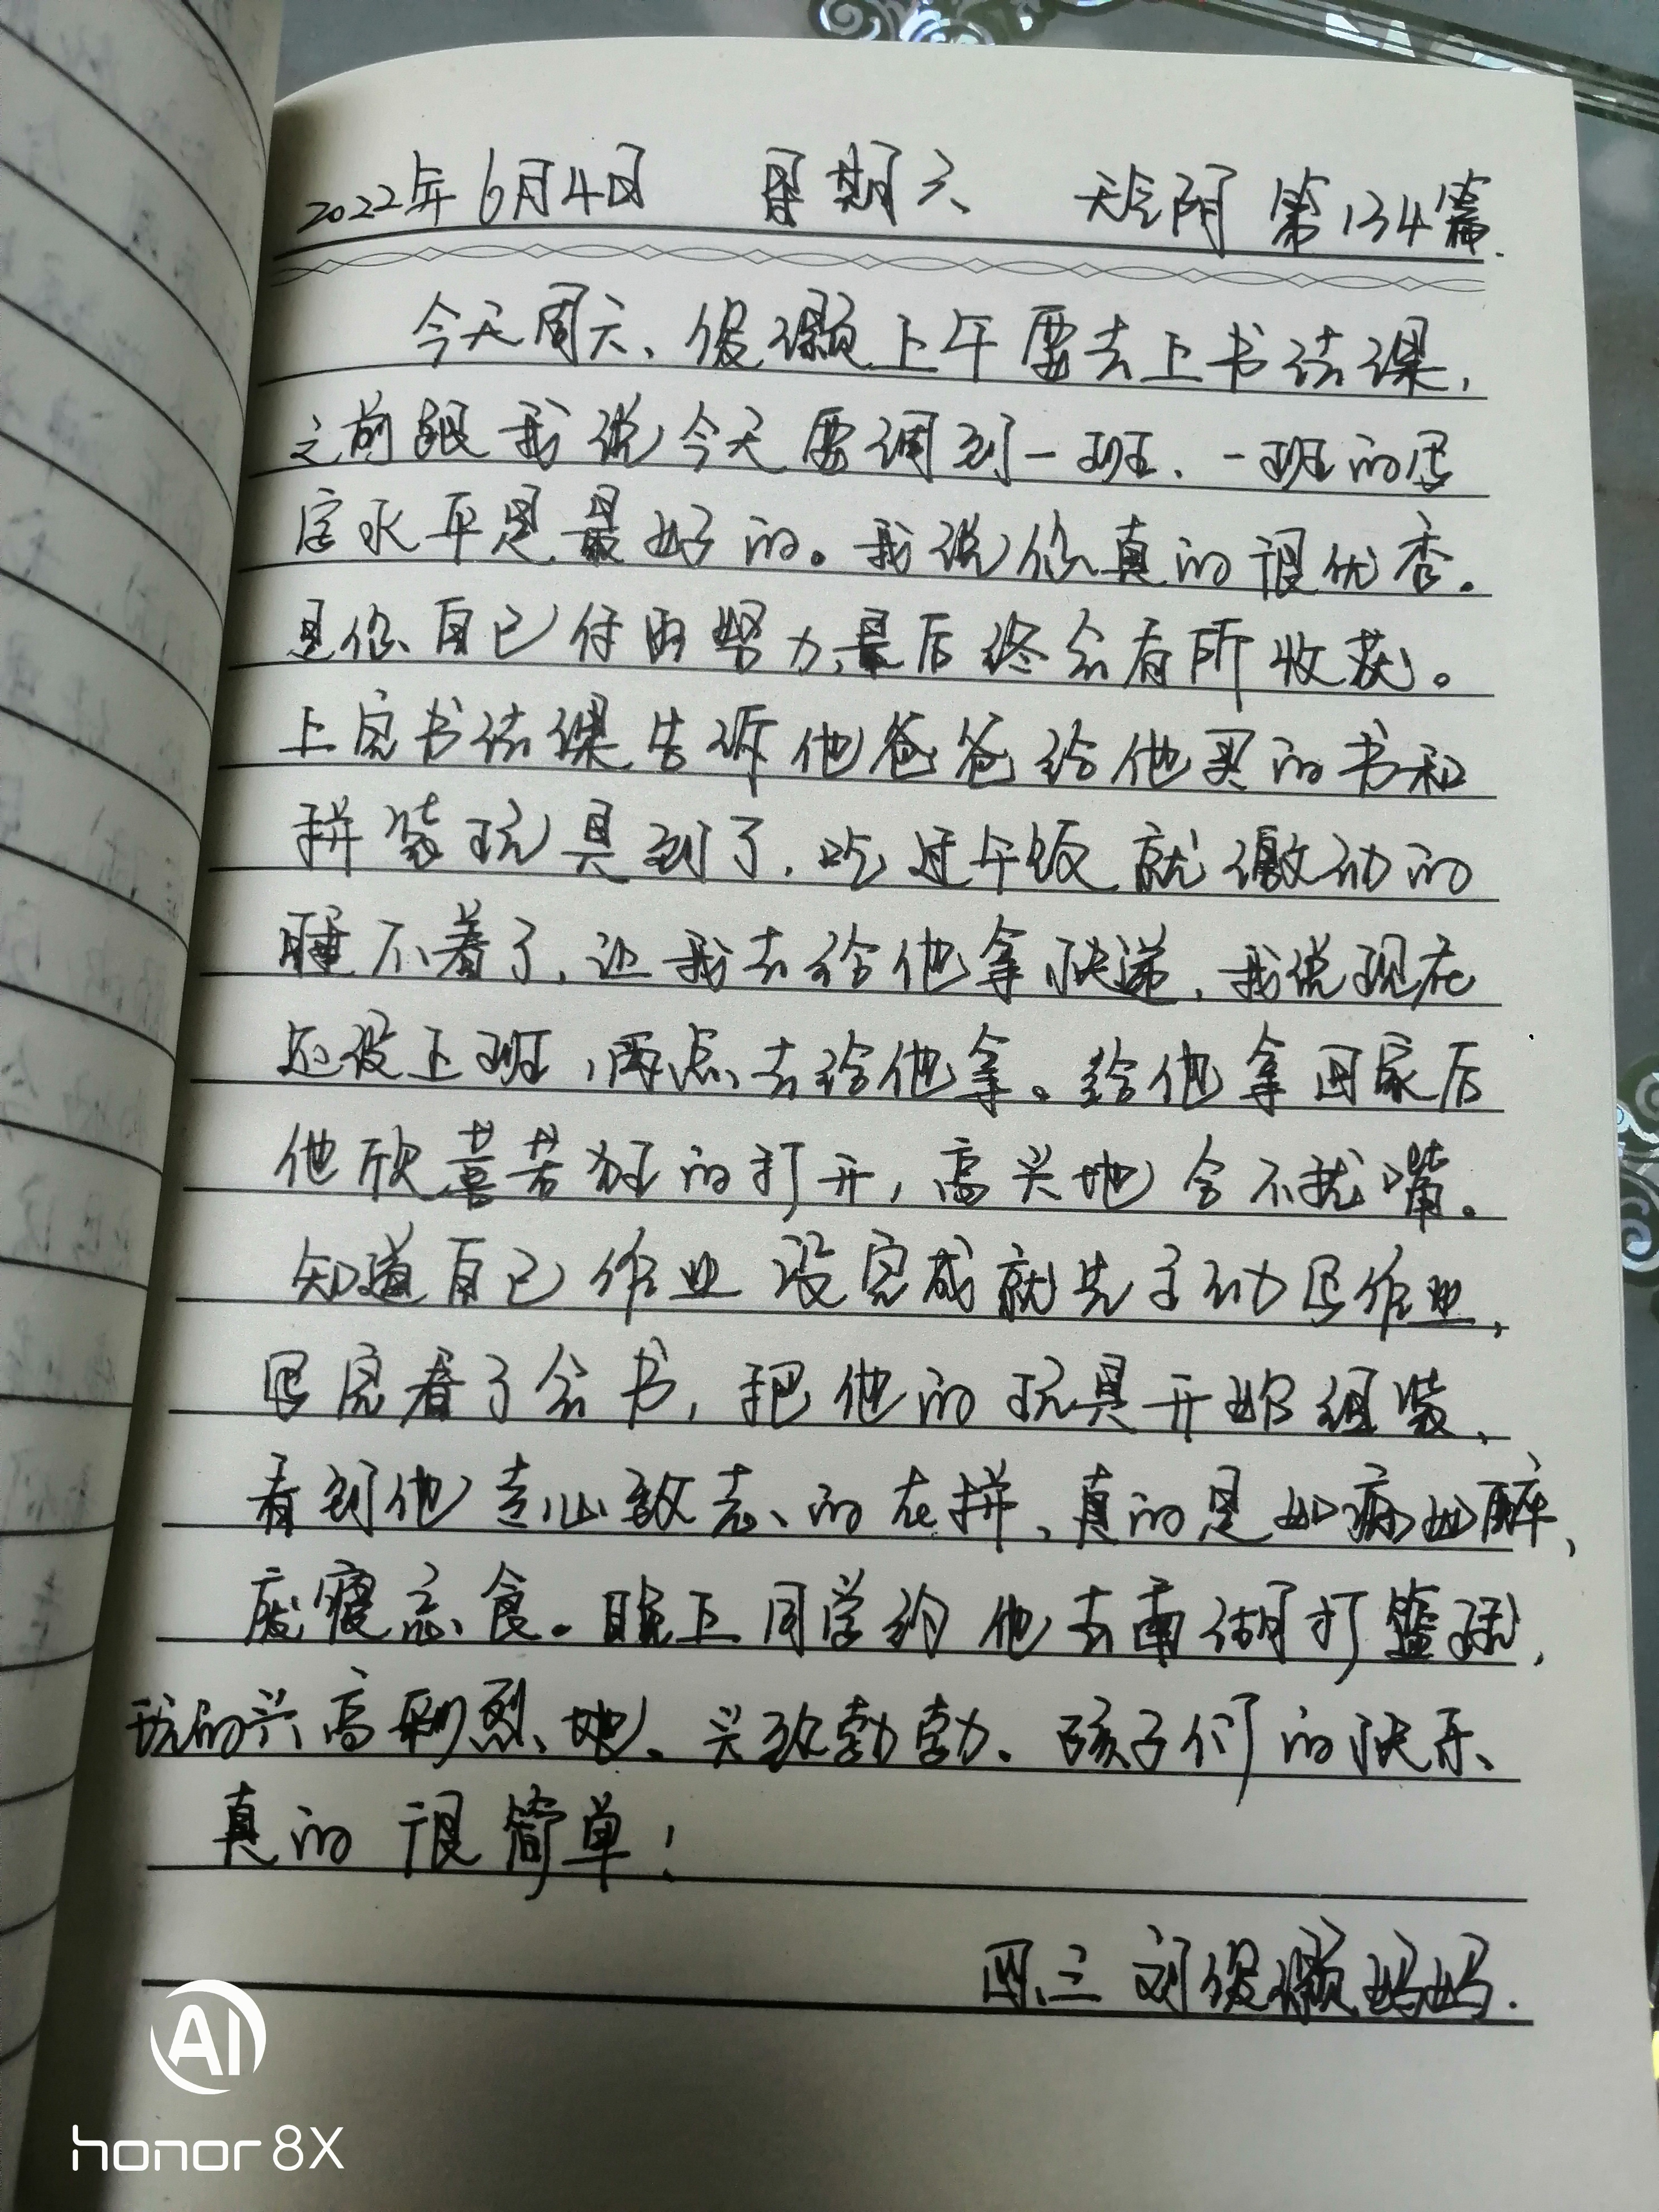 2022年6月4日 星期六 天气阴 第134篇.
今天周六、俊灏上午要去上书法课,
之前跟我说今天要调到一班、一班的写
字水平是最好的。我说你真的很优秀。
是你自己付出努力,最后终会有所收获。
上完书法课告诉他爸爸给他买的书和
拼装玩具到了,吃过午饭就激动的
睡不着了,让我去给他拿快递,我说现在
还没上班,两点去给他拿。给他拿回家后
他欣喜若狂的打开,高兴地合不拢嘴。
知道自己作业没完成就先主动写作业,
写完看了会书,把他的玩具开始组装、
看到他专心致志的在拼、真的是如痴如醉、
废寝忘食。晚上同学约他去南湖打篮球,
玩的兴高采烈地、兴致勃勃、孩子们的快乐、
真的很简单!
四三 刘俊灏妈妈.
AI
honor 8X